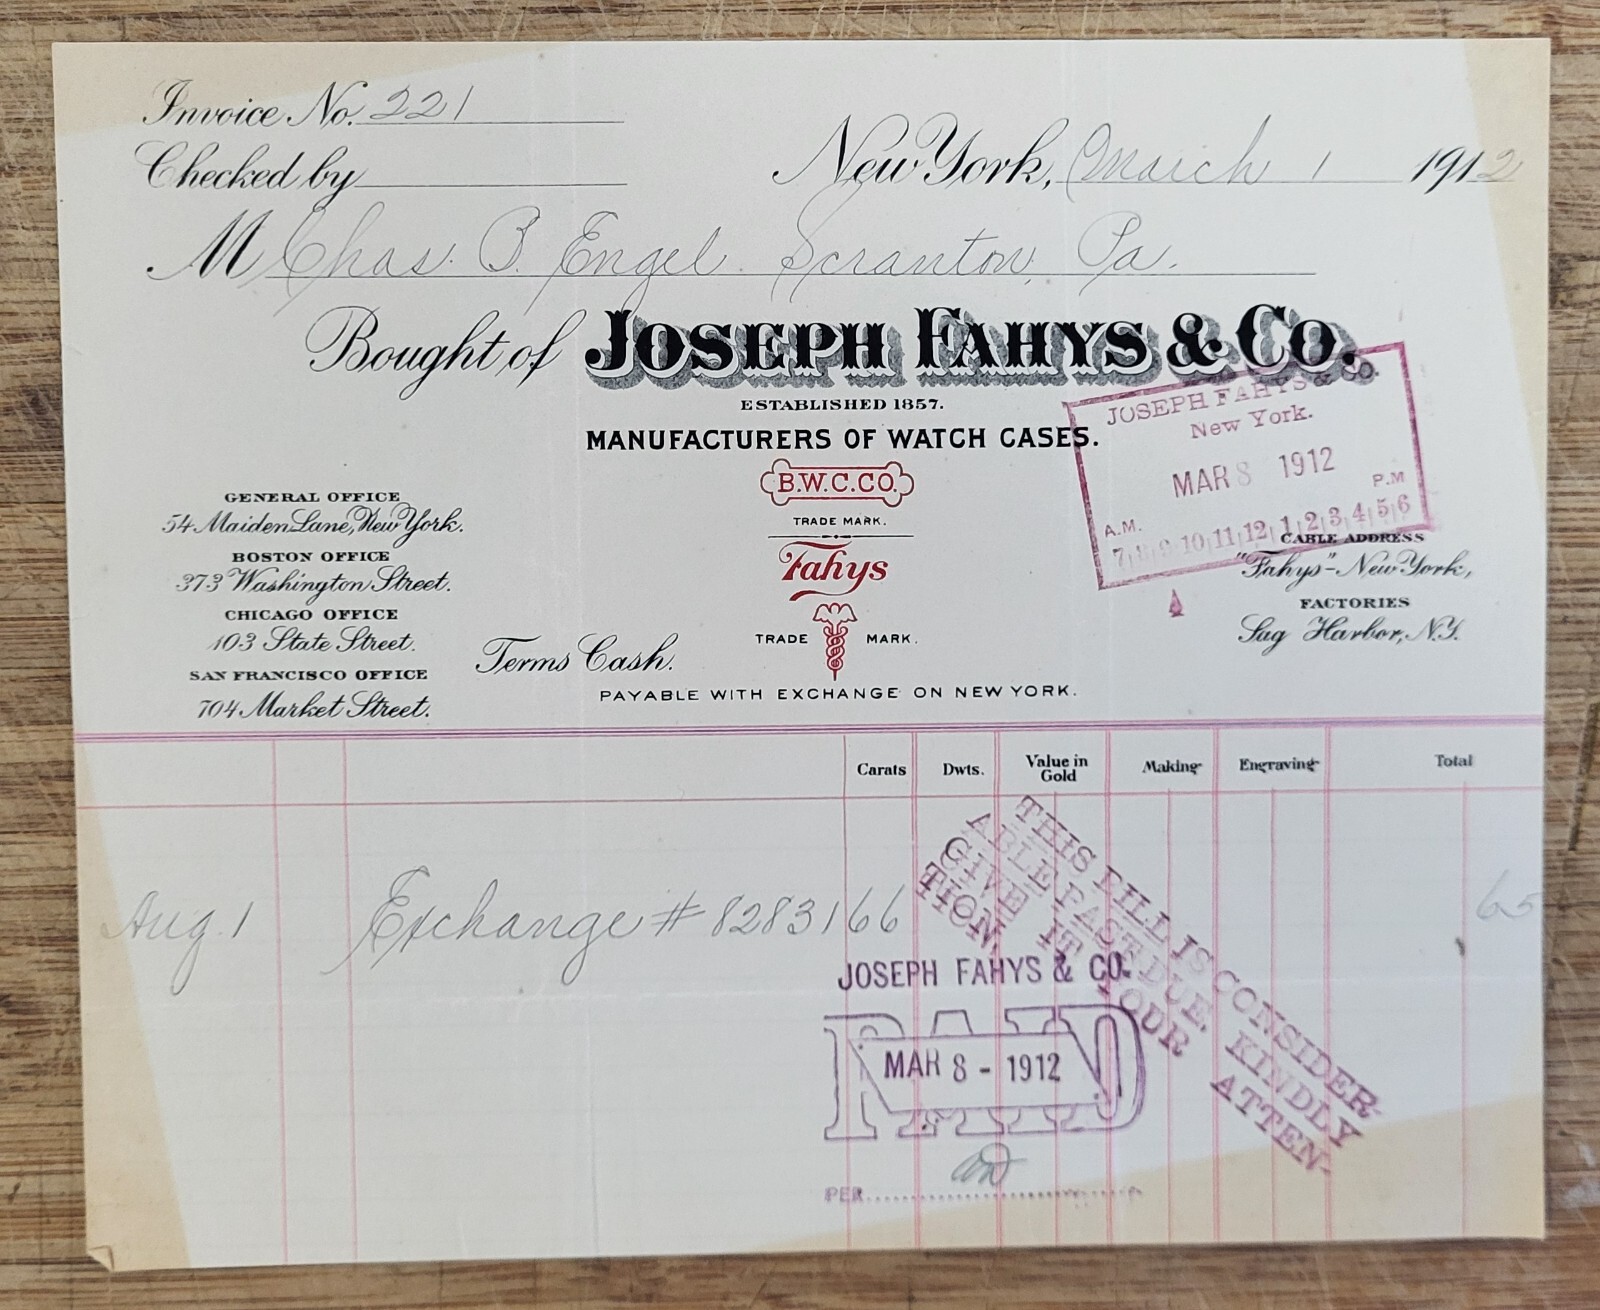 Invoice No. 221
Checked by
New York, March 1 1912
M Chas. B. Engel. Scranton, Pa.
Bought of JOSEPH FAHYS & CO.
ESTABLISHED 1857.
MANUFACTURERS OF WATCH CASES.
B.W.C.CO.
TRADE MARK.
Fahys
TRADE MARK.
GENERAL OFFICE
54 Maiden Lane, New York.
BOSTON OFFICE
373 Washington Street.
CHICAGO OFFICE
103 State Street.
SAN FRANCISCO OFFICE
704 Market Street.
Terms Cash.
PAYABLE WITH EXCHANGE ON NEW YORK.
JOSEPH FAHYS & CO.
New York.
MAR 8 1912
A.M. P.M
7 8 9 10 11 12 1 2 3 4 5 6
CABLE ADDRESS
"Fahys"-New York,
FACTORIES
Sag Harbor, N.Y.
Carats Dwts. Value in Gold Making Engraving Total
Aug. 1 Exchange # 8283166 65
THIS BILL IS CONSIDER-
ABLE PAST DUE. KINDLY
GIVE IT YOUR ATTEN-
TION.
JOSEPH FAHYS & CO.
PAID
MAR 8 - 1912
PER